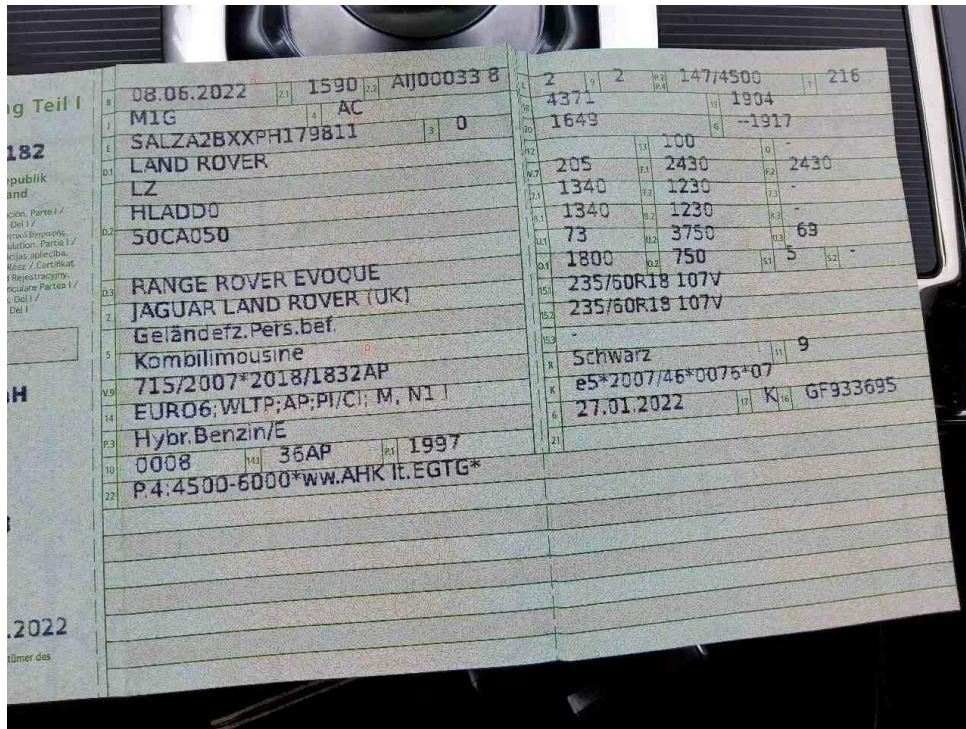 ng Teil I
182
epublik
and
ación. Parte I /
Del I /
ulation. Partie I /
cijas apliecība.
Rész / Certifikat
Rejestracyjny.
riculare Partea I /
Del I /
Del I
AH
.2022
tümer des
B 08.06.2022 2.1 1590 2.2 AIJ00033 8
J M1G 4 AC
E SALZA2BXXPH179811 3 0
D.1 LAND ROVER
LZ
D.2 HLADD0
50CA050
D.3 RANGE ROVER EVOQUE
2 JAGUAR LAND ROVER (UK)
5 Geländefz.Pers.bef.
Kombilimousine
V.9 715/2007*2018/1832AP
14 EURO6;WLTP;AP;PI/CI; M, N1 I
P.3 Hybr.Benzin/E
10 0008 14.1 36AP P.1 1997
22 P.4:4500-6000*ww.AHK lt.EGTG*
L 2 9 2 P.2 P.4 147/4500 T 216
18 4371 19 1904
20 1649 G --1917
12 13 100 Q -
V.7 205 F.1 2430 F.2 2430
7.1 1340 7.2 1230 7.3 -
8.1 1340 8.2 1230 8.3 -
U.1 73 U.2 3750 U.3 69
O.1 1800 O.2 750 S.1 5 S.2 -
15.1 235/60R18 107V
15.2 235/60R18 107V
15.3 -
R Schwarz 11 9
K e5*2007/46*0076*07
6 27.01.2022 17 K 16 GF933695
21